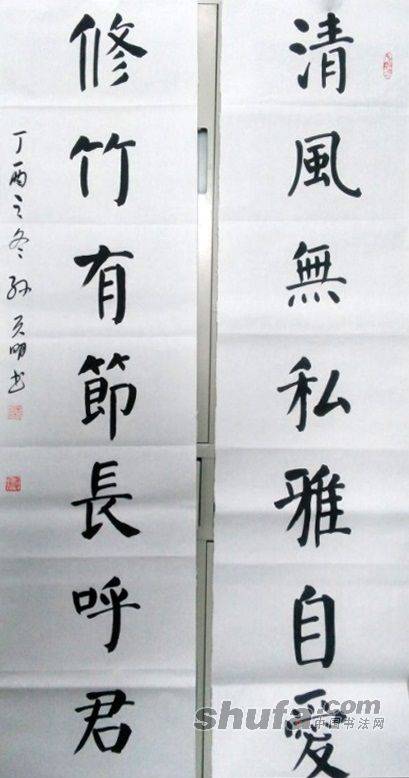 清風無私雅自愛
修竹有節長呼君
丁酉之冬孫
明書
shufa.com
中国书法网